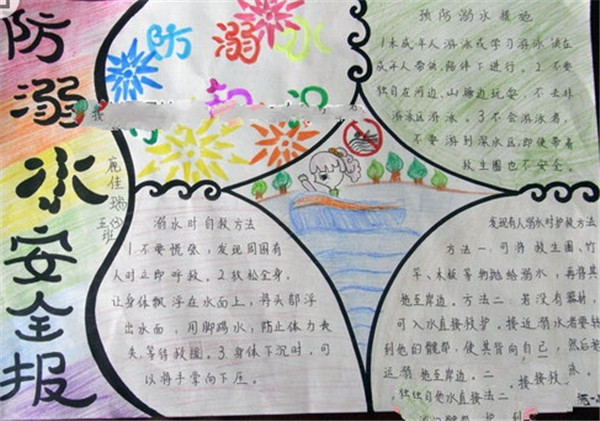 防溺水安全报
防溺水
知识
施佳瑞
五班
预防溺水措施
1未成年人游泳或学习游泳须在
成年人带领、陪伴下进行。2.不要
独自在河边、山塘边玩耍,不去非
游泳区游泳。3.不会游泳者,
不要游到深水区,即使带着
救生圈也不安全。
溺水时自救方法
1.不要慌张,发现周围有
人时立即呼救。2.放松全身,
让身体飘浮在水面上,将头部浮
出水面,用脚踢水,防止体力丧
失,等待救援。3.身体下沉时,可
以将手掌向下压。
发现有人溺水时护救方法
方法一:可将救生圈、竹
竿、木板等物抛给溺水,再将其
拖至岸边。方法二:若没有器材,
可入水直接救护。接近溺水者要转
到他的髋部,使其背向自己,然后拖
运。拖至岸边。
独自他水直接法二